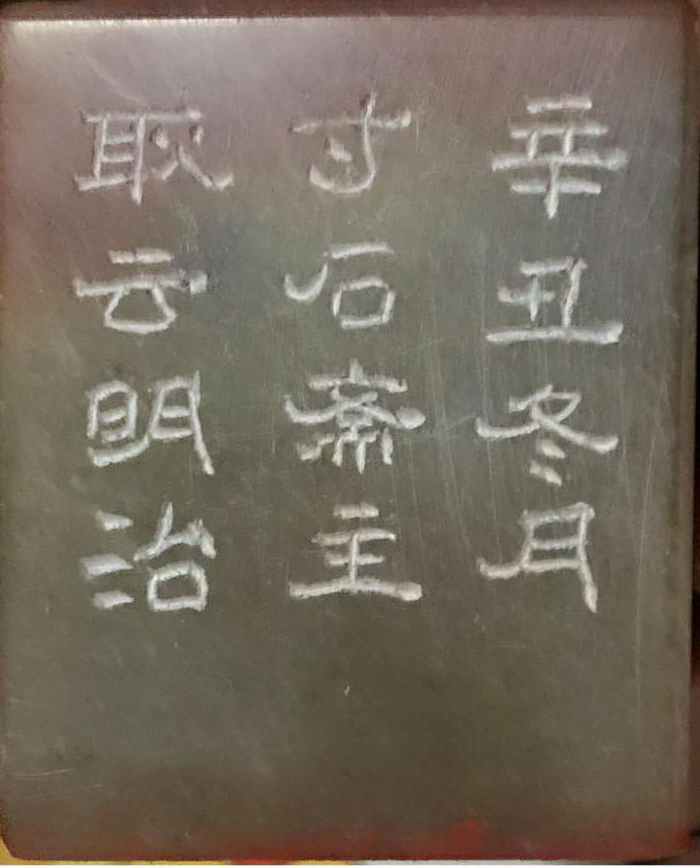 辛丑冬月
寸石斋主
耿云明治